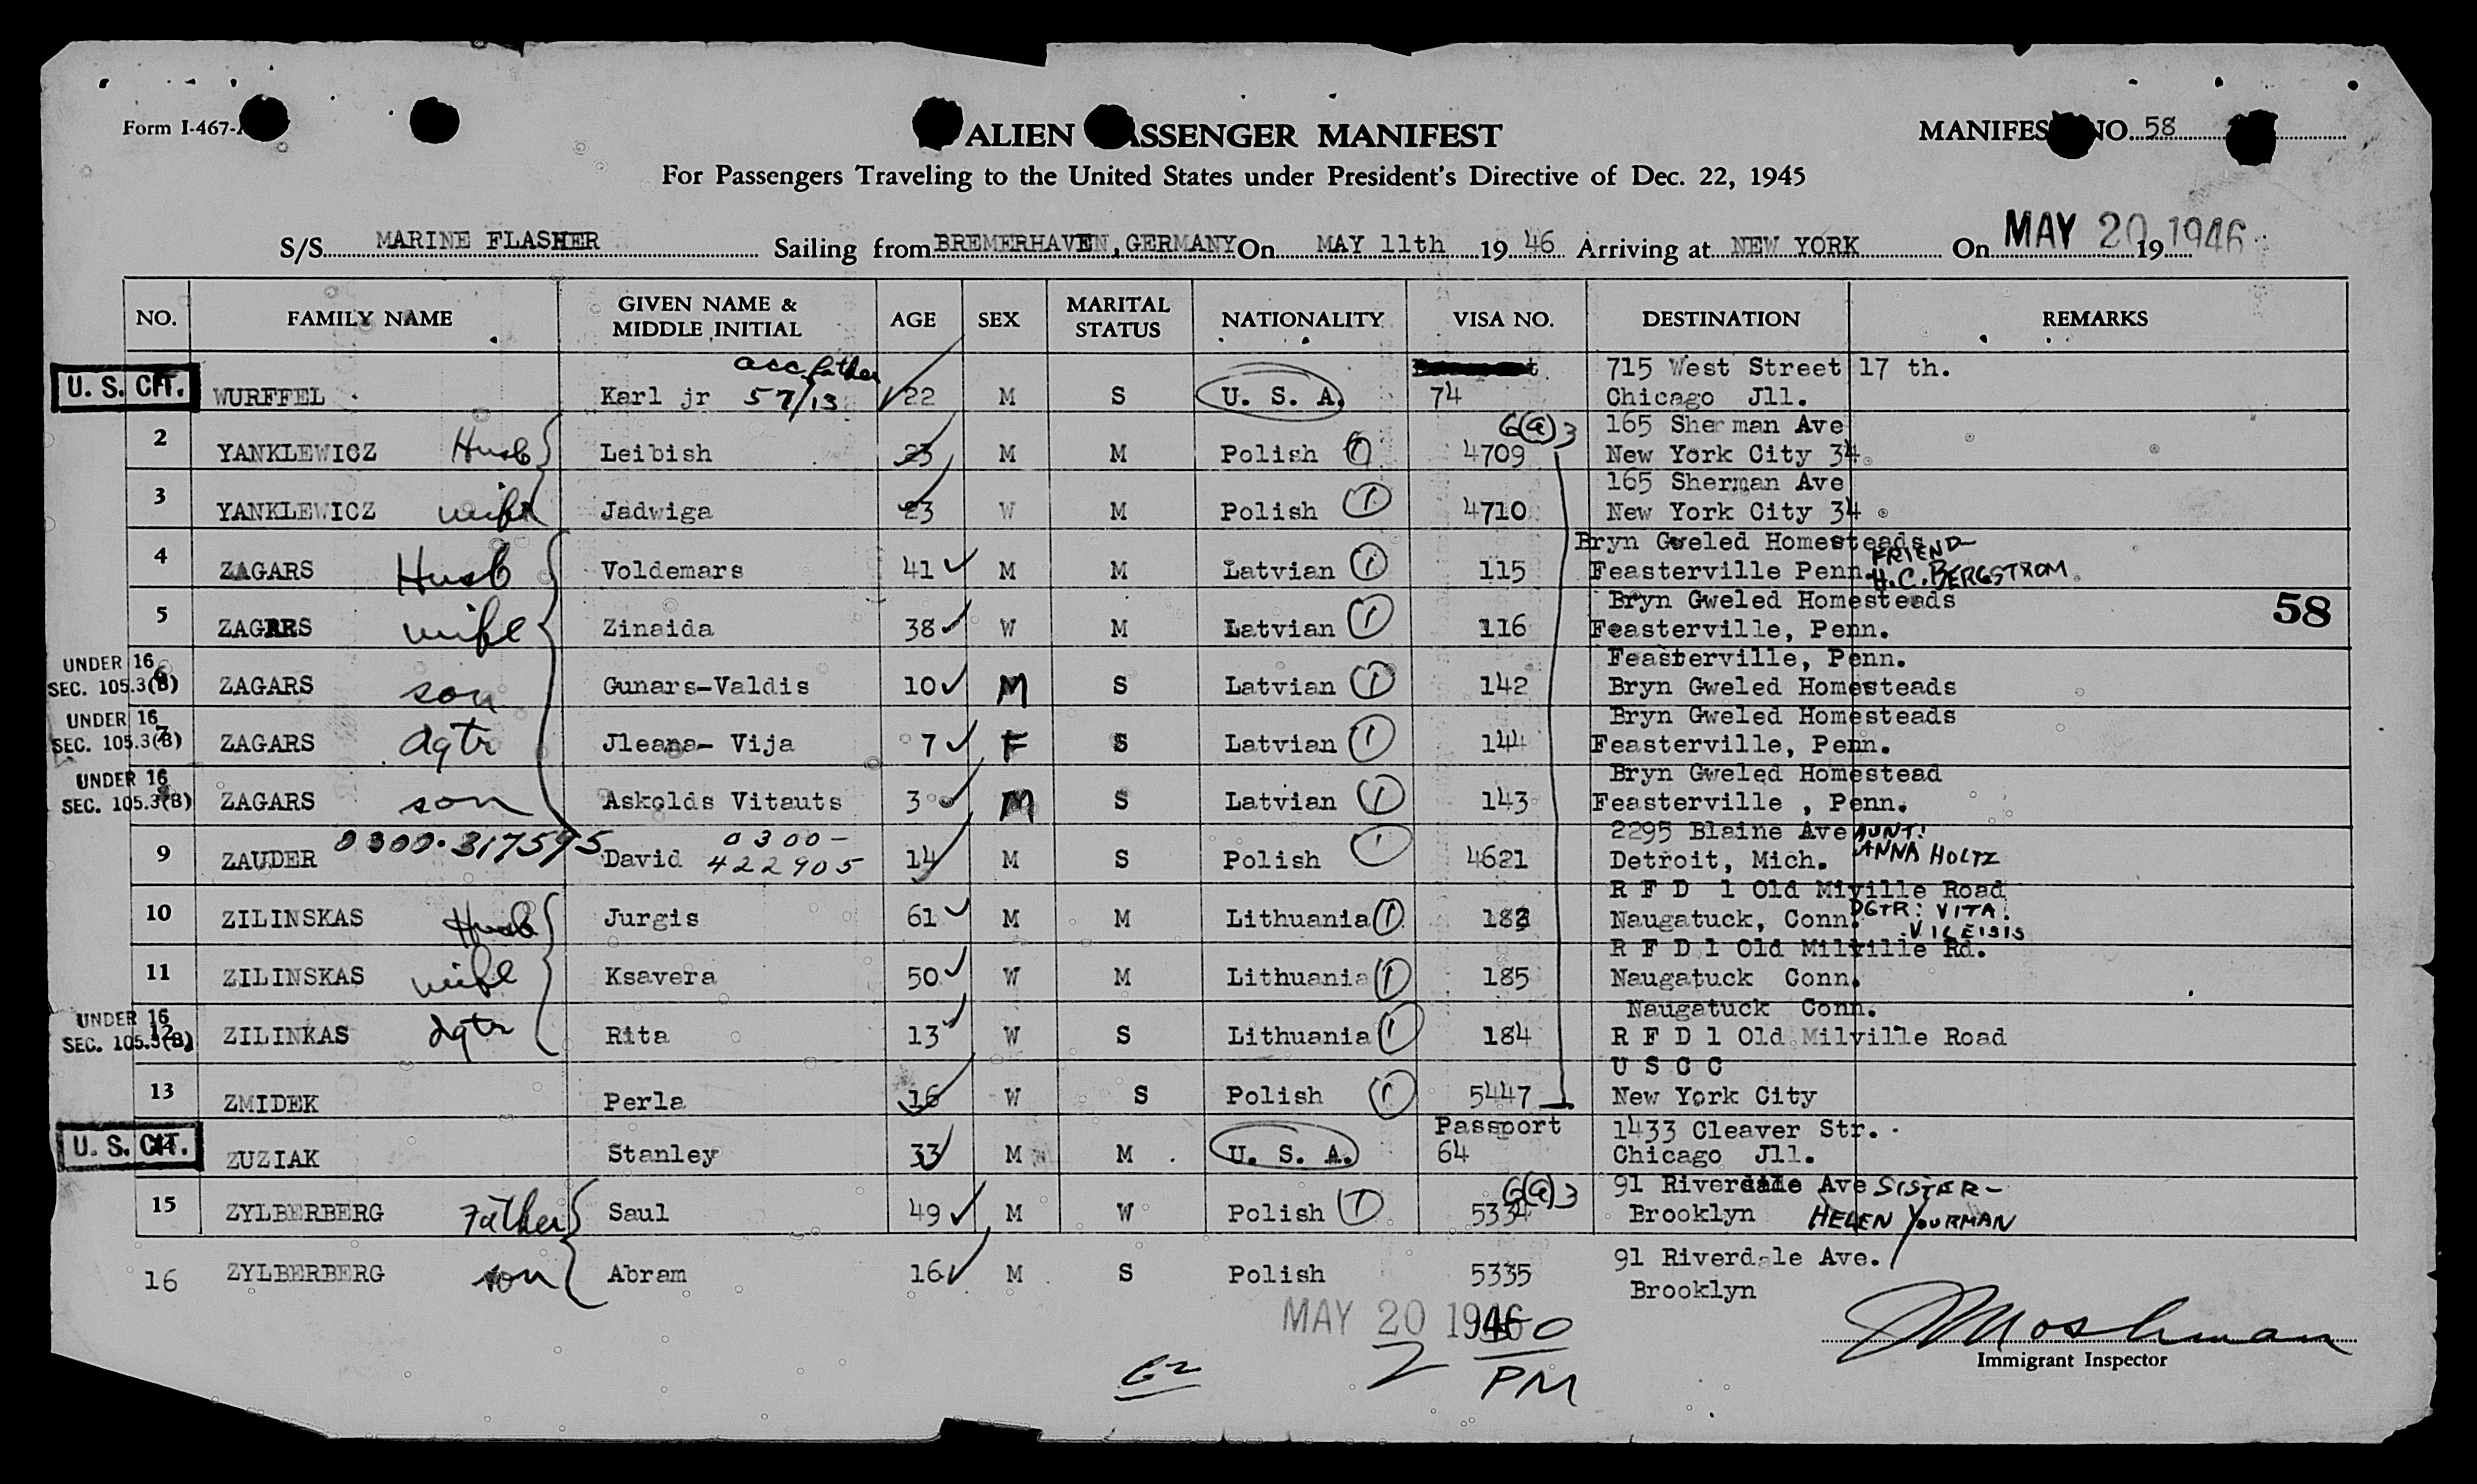 Form I-467-
ALIEN PASSENGER MANIFEST
MANIFEST NO. 58
For Passengers Traveling to the United States under President's Directive of Dec. 22, 1945
S/S MARINE FLASHER Sailing from BREMERHAVEN, GERMANY On MAY 11th 19 46 Arriving at NEW YORK On MAY 20 19 1946
NO. FAMILY NAME GIVEN NAME & MIDDLE INITIAL AGE SEX MARITAL STATUS NATIONALITY VISA NO. DESTINATION REMARKS
acc. father 715 West Street 17 th.
U. S. CIT. WURFFEL Karl jr 57/13 22 M S U. S. A. 74 Chicago Jll.
6(a)3 165 Sherman Ave
2 YANKLEWICZ Husb Leibish 23 M M Polish 4709 New York City 34
165 Sherman Ave
3 YANKLEWICZ wife Jadwiga 23 W M Polish 1 4710 New York City 34
Bryn Gweled Homesteads FRIEND-
4 ZAGARS Husb Voldemars 41 M M Latvian 1 115 Feasterville Penn. H.C. BERGSTROM
Bryn Gweled Homesteads
5 ZAGARS wife Zinaida 38 W M Latvian 1 116 Feasterville, Penn. 58
UNDER 16 Feasterville, Penn.
SEC. 105.3(B) 6 ZAGARS son Gunars-Valdis 10 M S Latvian 1 142 Bryn Gweled Homesteads
UNDER 16 Bryn Gweled Homesteads
SEC. 105.3(B) 7 ZAGARS dgtr Jleana- Vija 7 F S Latvian 1 144 Feasterville, Penn.
UNDER 16 Bryn Gweled Homestead
SEC. 105.3(B) ZAGARS son Askolds Vitauts 3 M S Latvian 1 143 Feasterville , Penn.
0300-317595 0300- 2295 Blaine Ave AUNT:
9 ZAUDER David 422905 14 M S Polish 1 4621 Detroit, Mich. ANNA HOLTZ
R F D 1 Old Miville Road
10 ZILINSKAS Husb Jurgis 61 M M Lithuania 1 183 Naugatuck, Conn. DGTR: VITA VILEISIS
R F D 1 Old Milville Rd.
11 ZILINSKAS wife Ksavera 50 W M Lithuania 1 185 Naugatuck Conn.
UNDER 16 Naugatuck Conn.
SEC. 105.3(B) 12 ZILINKAS dgtr Rita 13 W S Lithuania 1 184 R F D 1 Old Milville Road
U S C C
13 ZMIDEK Perla 16 W S Polish 1 5447 New York City
Passport 1433 Cleaver Str.
U. S. CIT. 14 ZUZIAK Stanley 33 M M U. S. A. 64 Chicago Jll.
6(a)3 91 Riverdale Ave SISTER-
15 ZYLBERBERG Father Saul 49 M W Polish 1 5334 Brooklyn HELEN YOURMAN
91 Riverdale Ave.
16 ZYLBERBERG son Abram 16 M S Polish 5335 Brooklyn
MAY 20 1946
2 PM
Moshman
Immigrant Inspector